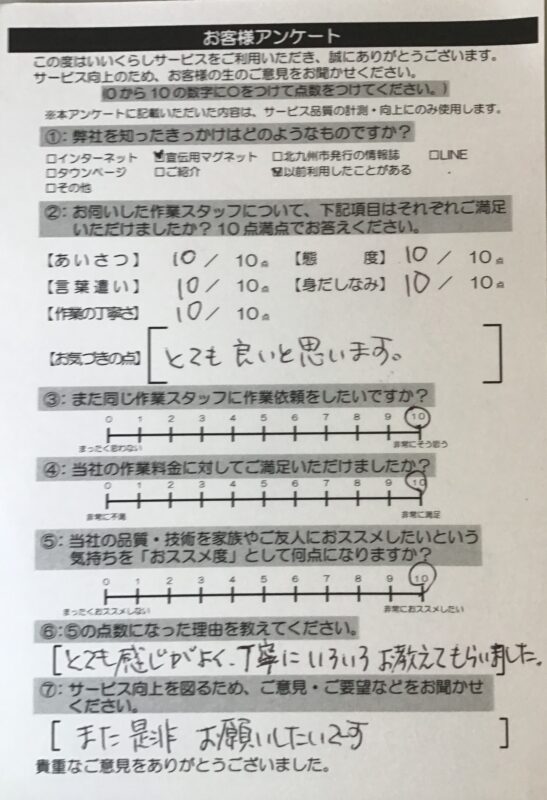 お客様アンケート
この度はいいくらしサービスをご利用いただき、誠にありがとうございます。
サービス向上のため、お客様の生のご意見をお聞かせください。
(0から10の数字に○をつけて点数をつけてください。)
※本アンケートに記載いただいた内容は、サービス品質の計測・向上にのみ使用します。
①：弊社を知ったきっかけはどのようなものですか？
□インターネット ☑宣伝用マグネット □北九州市発行の情報誌 □LINE
□タウンページ □ご紹介 ☑以前利用したことがある
□その他
②：お伺いした作業スタッフについて、下記項目はそれぞれご満足
いただけましたか？10点満点でお答えください。
【あいさつ】 10 / 10点 【態度】 10 / 10点
【言葉遣い】 10 / 10点 【身だしなみ】 10 / 10点
【作業の丁寧さ】 10 / 10点
【お気づきの点】 [とても良いと思います。]
③：また同じ作業スタッフに作業依頼をしたいですか？
0 1 2 3 4 5 6 7 8 9 10
まったく思わない 非常にそう思う
④：当社の作業料金に対してご満足いただけましたか？
0 1 2 3 4 5 6 7 8 9 10
非常に不満 非常に満足
⑤：当社の品質・技術を家族やご友人におススメしたいという
気持ちを「おススメ度」として何点になりますか？
0 1 2 3 4 5 6 7 8 9 10
まったくおススメしない 非常におススメしたい
⑥：⑤の点数になった理由を教えてください。
[とても感じがよく、丁寧にいろいろお教えてもらいました。
⑦：サービス向上を図るため、ご意見・ご要望などをお聞かせ
ください。
[また是非 お願いしたいです]
貴重なご意見をありがとうございました。